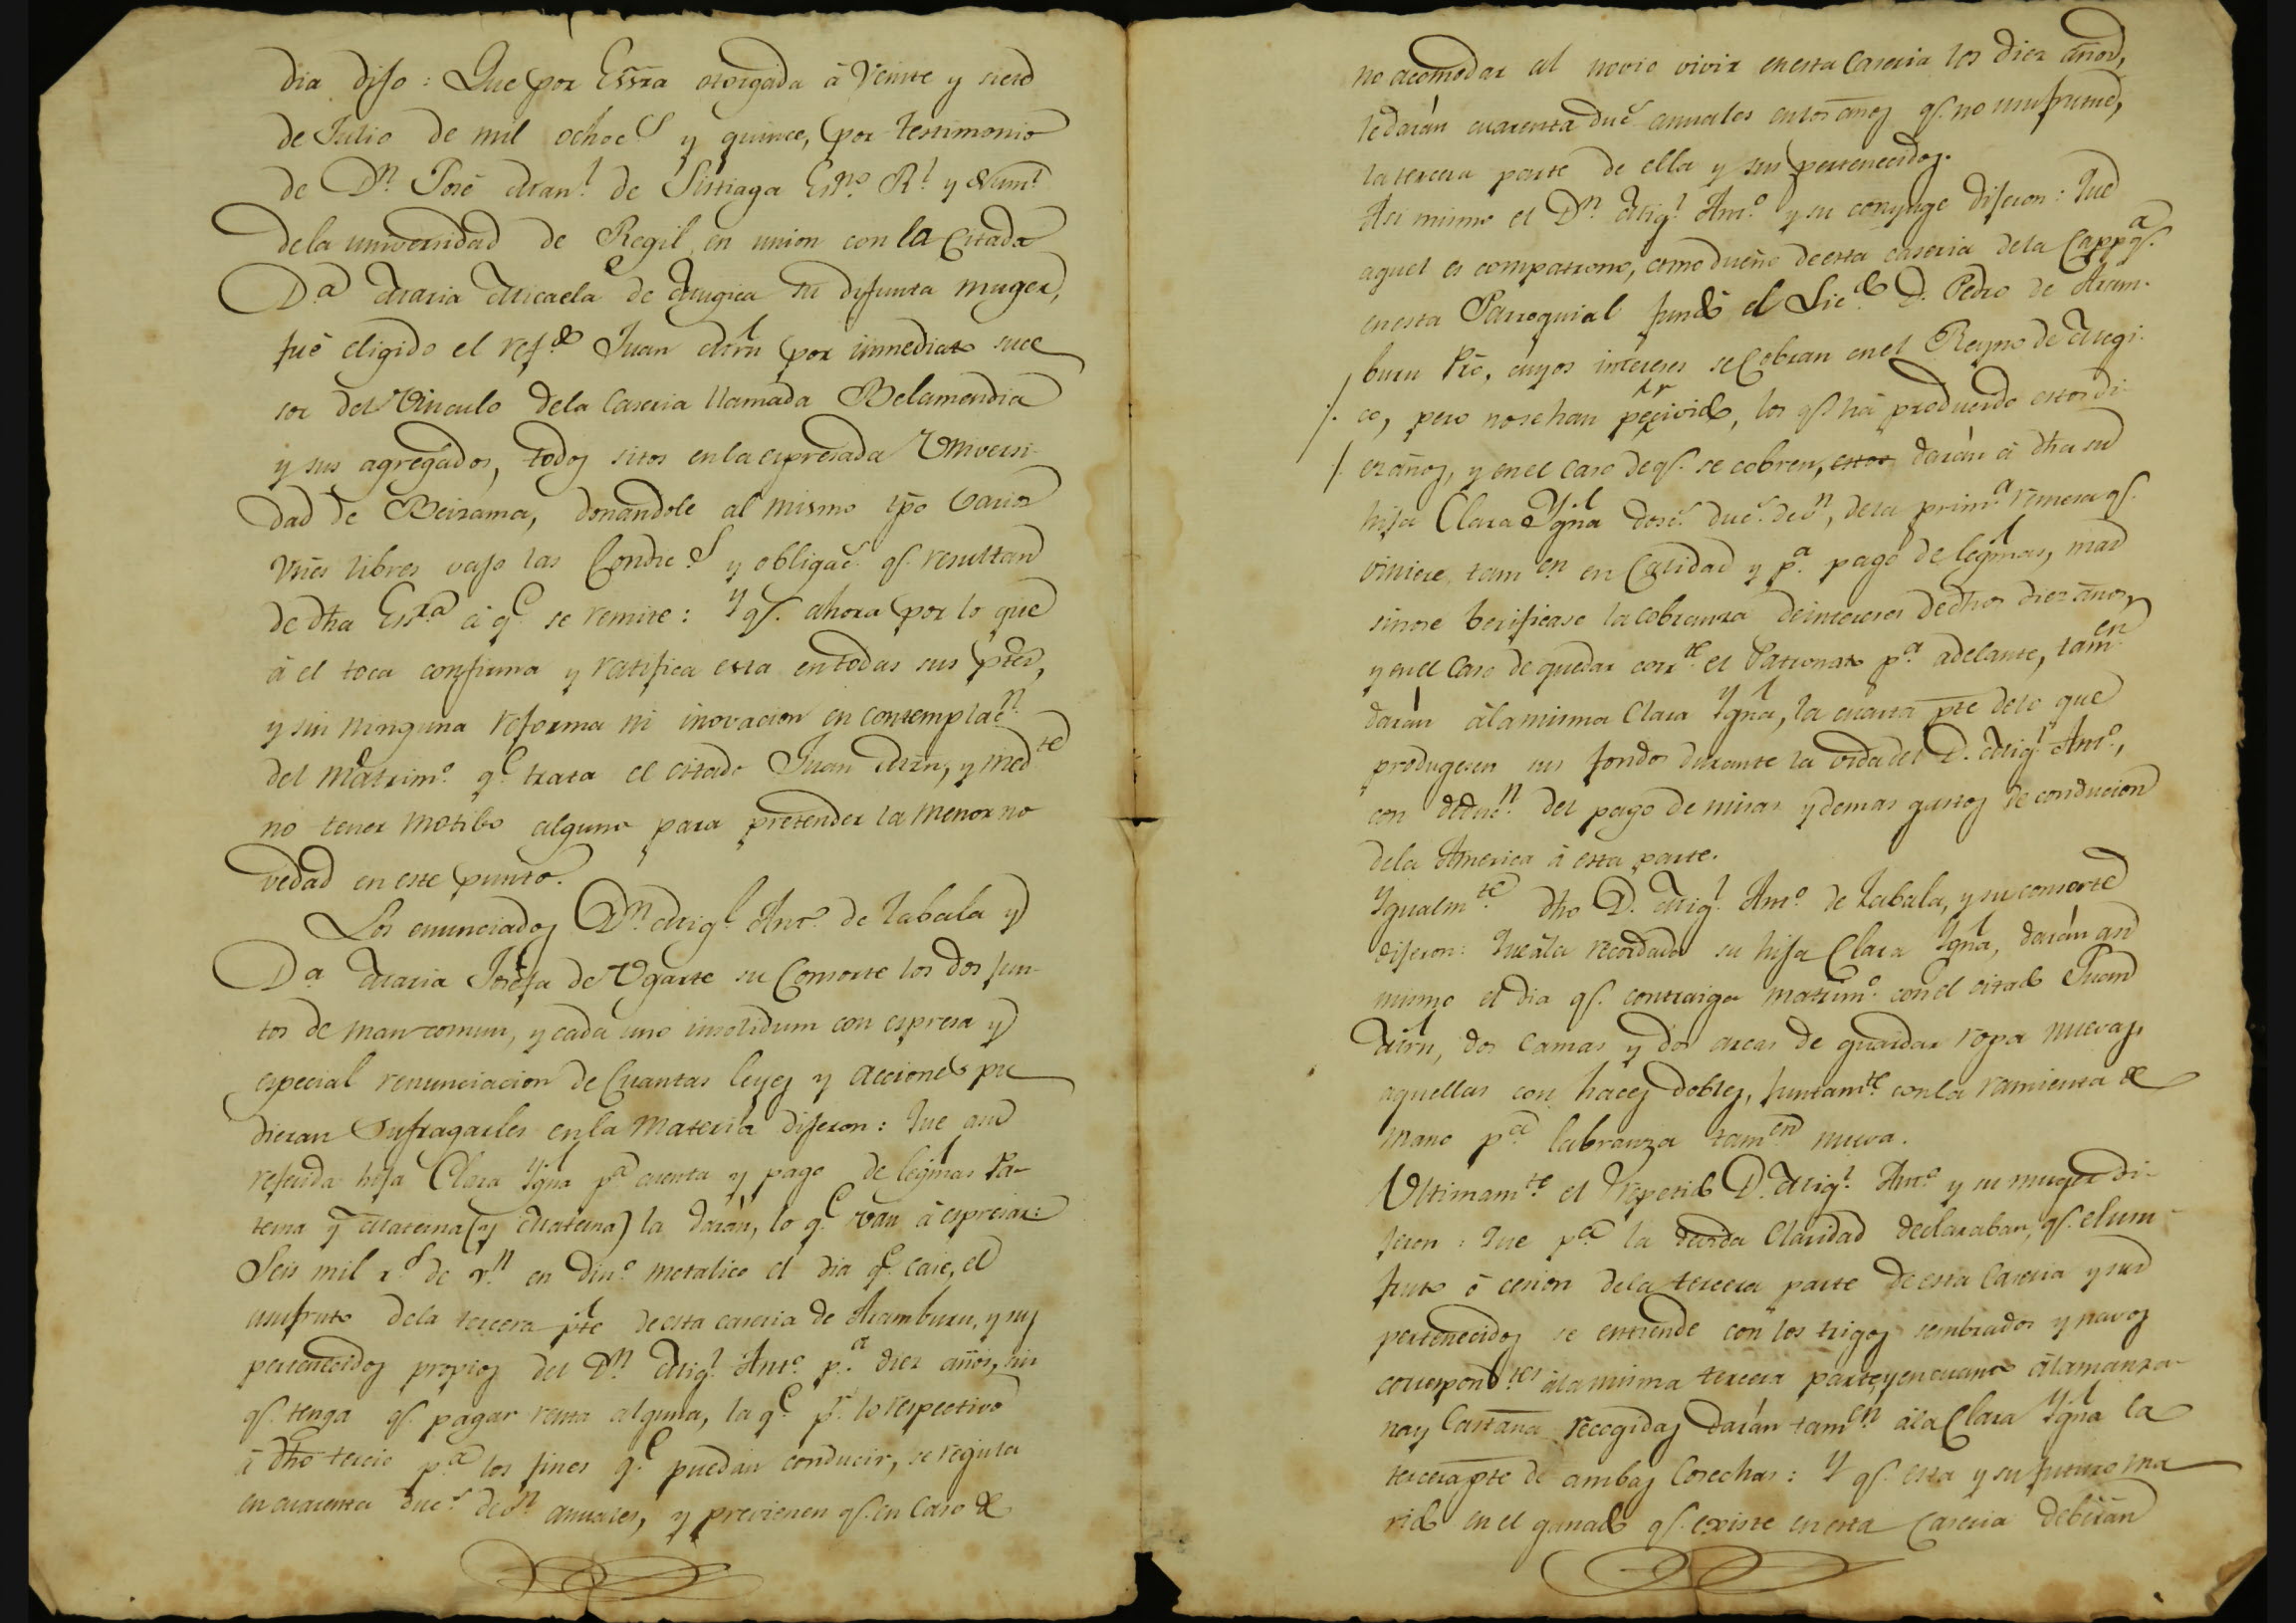 dia dijo: Que por Essra otorgada à Veinte y siete
de Julio de mil ochocs y quince, por testimonio
de Dn. José Manl. de Sistiaga Esno. Rl. y Numl.
dela universidad de Regil, en union con la citada
Da. Maria Micaela de Mugica su difunta muger,
fué eligido el refdo. Juan Mrn por inmediato suce
sor del Vinculo dela Caseria llamada Belamendia
y sus agregados, todos sitos en la espresada Universi-
dad de Beizama, donandole al mismo tpo varios
vnes libres vajo las Condics. y obligacs. qe. resultan
de dha Essra. à qe. se remite: Y qe. ahora por lo que
à el toca confirma y ratifica esta entodas sus ptes,
y sin ninguna reforma ni inovacion en contemplacn.
del Matrimo. qe. trata el citado Juan Mrn, y medte
no tener motibo alguno para pretender la menor no
vedad en este punto.
Los enunciados Dn. Migl. Anto. de Zabala y
Da. Maria Josefa de Ugarte su Consorte los dos jun-
tos de mancomun, y cada uno insolidum con espresa y
especial renunciacion de Cuantas leyes y acciones pu
dieran Sufragarles en la materia dijeron: Que asu
referida hija Clara Ygna pa. cuenta y pago de legmas Pa-
terna y Materna (y Materna) la darán, lo qe. van à espresar:
Seis mil rs. de vn. en dino. metalico el dia qe. case, el
usufruto dela tercera pte de esta caseria de Aramburu, y sus
pertenecidos propios del Dn. Migl. Anto. pa. diez años, sin
qe. tenga qe. pagar renta alguna, la qe. pr. lo respectivo
à dho tercio pa. los fines qe. puedan conducir, se regula
en cuarenta ducs. de vn. anuales, y previenen qe. en Caso de
no acomodar al novio vivir en esta Caseria los diez años,
le darán cuarenta ducs anuales en los años qe. no usufrute,
la tercera parte de ella y sus pertenecidos.
Asi mismo el Dn. Migl. Anto. y su conyuge dijeron: Que
aquel es compatrono, como dueño de esta caseria dela Cappa. qe.
en esta Parroquial fundó el Licdo. D. Pedro de Aram-
buru Pro, cuyos intereses se Cobran en el Reyno de Megi-
co, pero no se han percivido, los qe. hà producido estos di-
ez años, y en el caso de qe. se cobren, estos darán à dha su
hija Clara Ygna doscs. ducs. de vn, dela prima. remesa qe.
viniere, tamen en Calidad y pa. pago de legmas, mas
sinose berificase la cobranza de intereses de dhos diez años,
y en el caso de quedar corrte. el Patronato pa. adelante, tamen
darán àla misma Clara Ygna, la cuarta pte de lo que
produgesen sus fondos durante la vida del D. Migl. Anto.,
con deducn. del pago de misas y demas gastos de conducion
dela America à esta parte.
Ygualmte. dho D. Migl. Anto. de Zabala, y su consorte
dijeron: Que àla recordada su hija Clara Ygna, darán asi
mismo el dia qe. contraiga matrimo. con el citado Juan
Mrn, dos camas y dos arcas de guardar ropa nuevas,
aquellas con haces dobles, juntamte. con la ramienta de
mano pa. labranza tamen nueva.
Ultimamte. el repetido D. Migl. Anto. y su muger di-
jeron: Que pa. la devida Claridad declaraban, qe. el usu-
fruto ò cesion dela tercera parte de esta Caseria y sus
pertenecidos se entiende con los trigos sembrados y navos
correspondtes. àla misma tercera parte, y en cuanto àla manza-
na y Castaña recogidas darán tamen. àla Clara Ygna la
tercera pte de ambas Cosechas: Y qe. esta y su futuro ma
rido en el ganado qe. existe en esta Caseria deberán